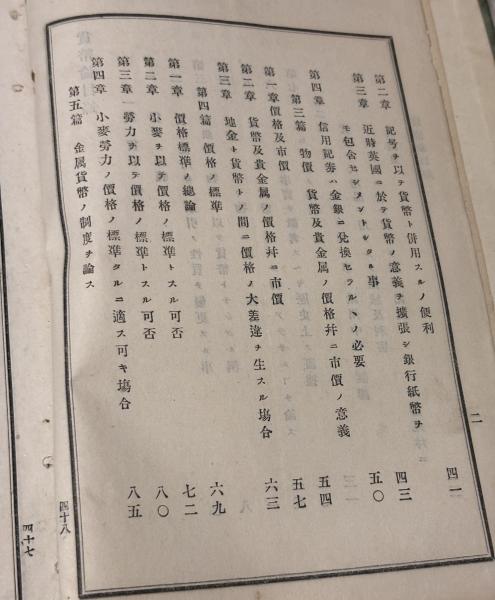 第二章 記号ヲ以テ貨幣ト併用スルノ便利 四一
第三章 近時英国ニ於テ貨幣ノ意義ヲ擴張シ銀行紙幣ヲ
モ包含セシメントシタル事 四三
第四章 信用記券ハ金銀ニ兌換セラルヽノ必要 五〇
第三篇 物價 貨幣及貴金属ノ價格幷ニ市價ノ意義 五四
第一章 價格及市價 五七
第二章 貨幣及貴金属ノ價格幷ニ市價
第三章 地金ト貨幣トノ間ニ價格ノ大差違ヲ生スル塲合 六三
第四篇 價格ノ標準
第一章 價格標準ノ總論 六九
第二章 小麥ヲ以テ價格ノ標準トスル可否 七二
第三章 勞力ヲ以テ價格ノ標準トスル可否 八〇
第四章 小麥勞力ノ價格ノ標準タルニ適ス可キ塲合 八五
第五篇 金属貨幣ノ制度ヲ論ス
二
四十八
四十七